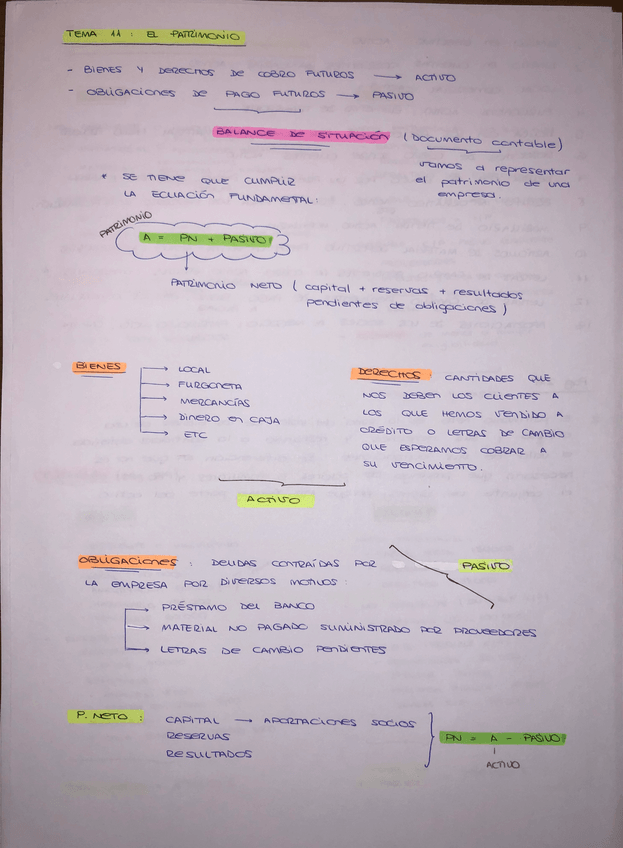 TEMA 11 : EL PATRIMONIO
- BIENES Y DERECHOS DE COBRO FUTUROS → ACTIVO
- OBLIGACIONES DE PAGO FUTUROS → PASIVO
BALANCE DE SITUACIÓN (Documento contable)
vamos a representar
el patrimonio de una
empresa.
* SE TIENE QUE CUMPLIR
LA ECUACIÓN FUNDAMENTAL:
PATRIMONIO
A = PN + PASIVO
PATRIMONIO NETO ( capital + reservas + resultados
pendientes de obligaciones )
BIENES
→ LOCAL
→ FURGONETA
→ MERCANCÍAS
→ DINERO en CAJA
→ ETC
DERECHOS : CANTIDADES QUE
NOS DEBEN LOS CLIENTES A
LOS QUE HEMOS VENDIDO A
CRÉDITO O LETRAS DE CAMBIO
QUE ESPERAMOS COBRAR A
SU VENCIMIENTO.
ACTIVO
OBLIGACIONES : DEUDAS CONTRAÍDAS POR
LA EMPRESA POR DIVERSOS MOTIVOS :
PASIVO
→ PRÉSTAMO DEL BANCO
→ MATERIAL NO PAGADO SUMINISTRADO POR PROVEEDORES
→ LETRAS DE CAMBIO PENDIENTES
P. NETO : CAPITAL → APORTACIONES SOCIOS
RESERVAS
RESULTADOS
PN = A - PASIVO
ACTIVO